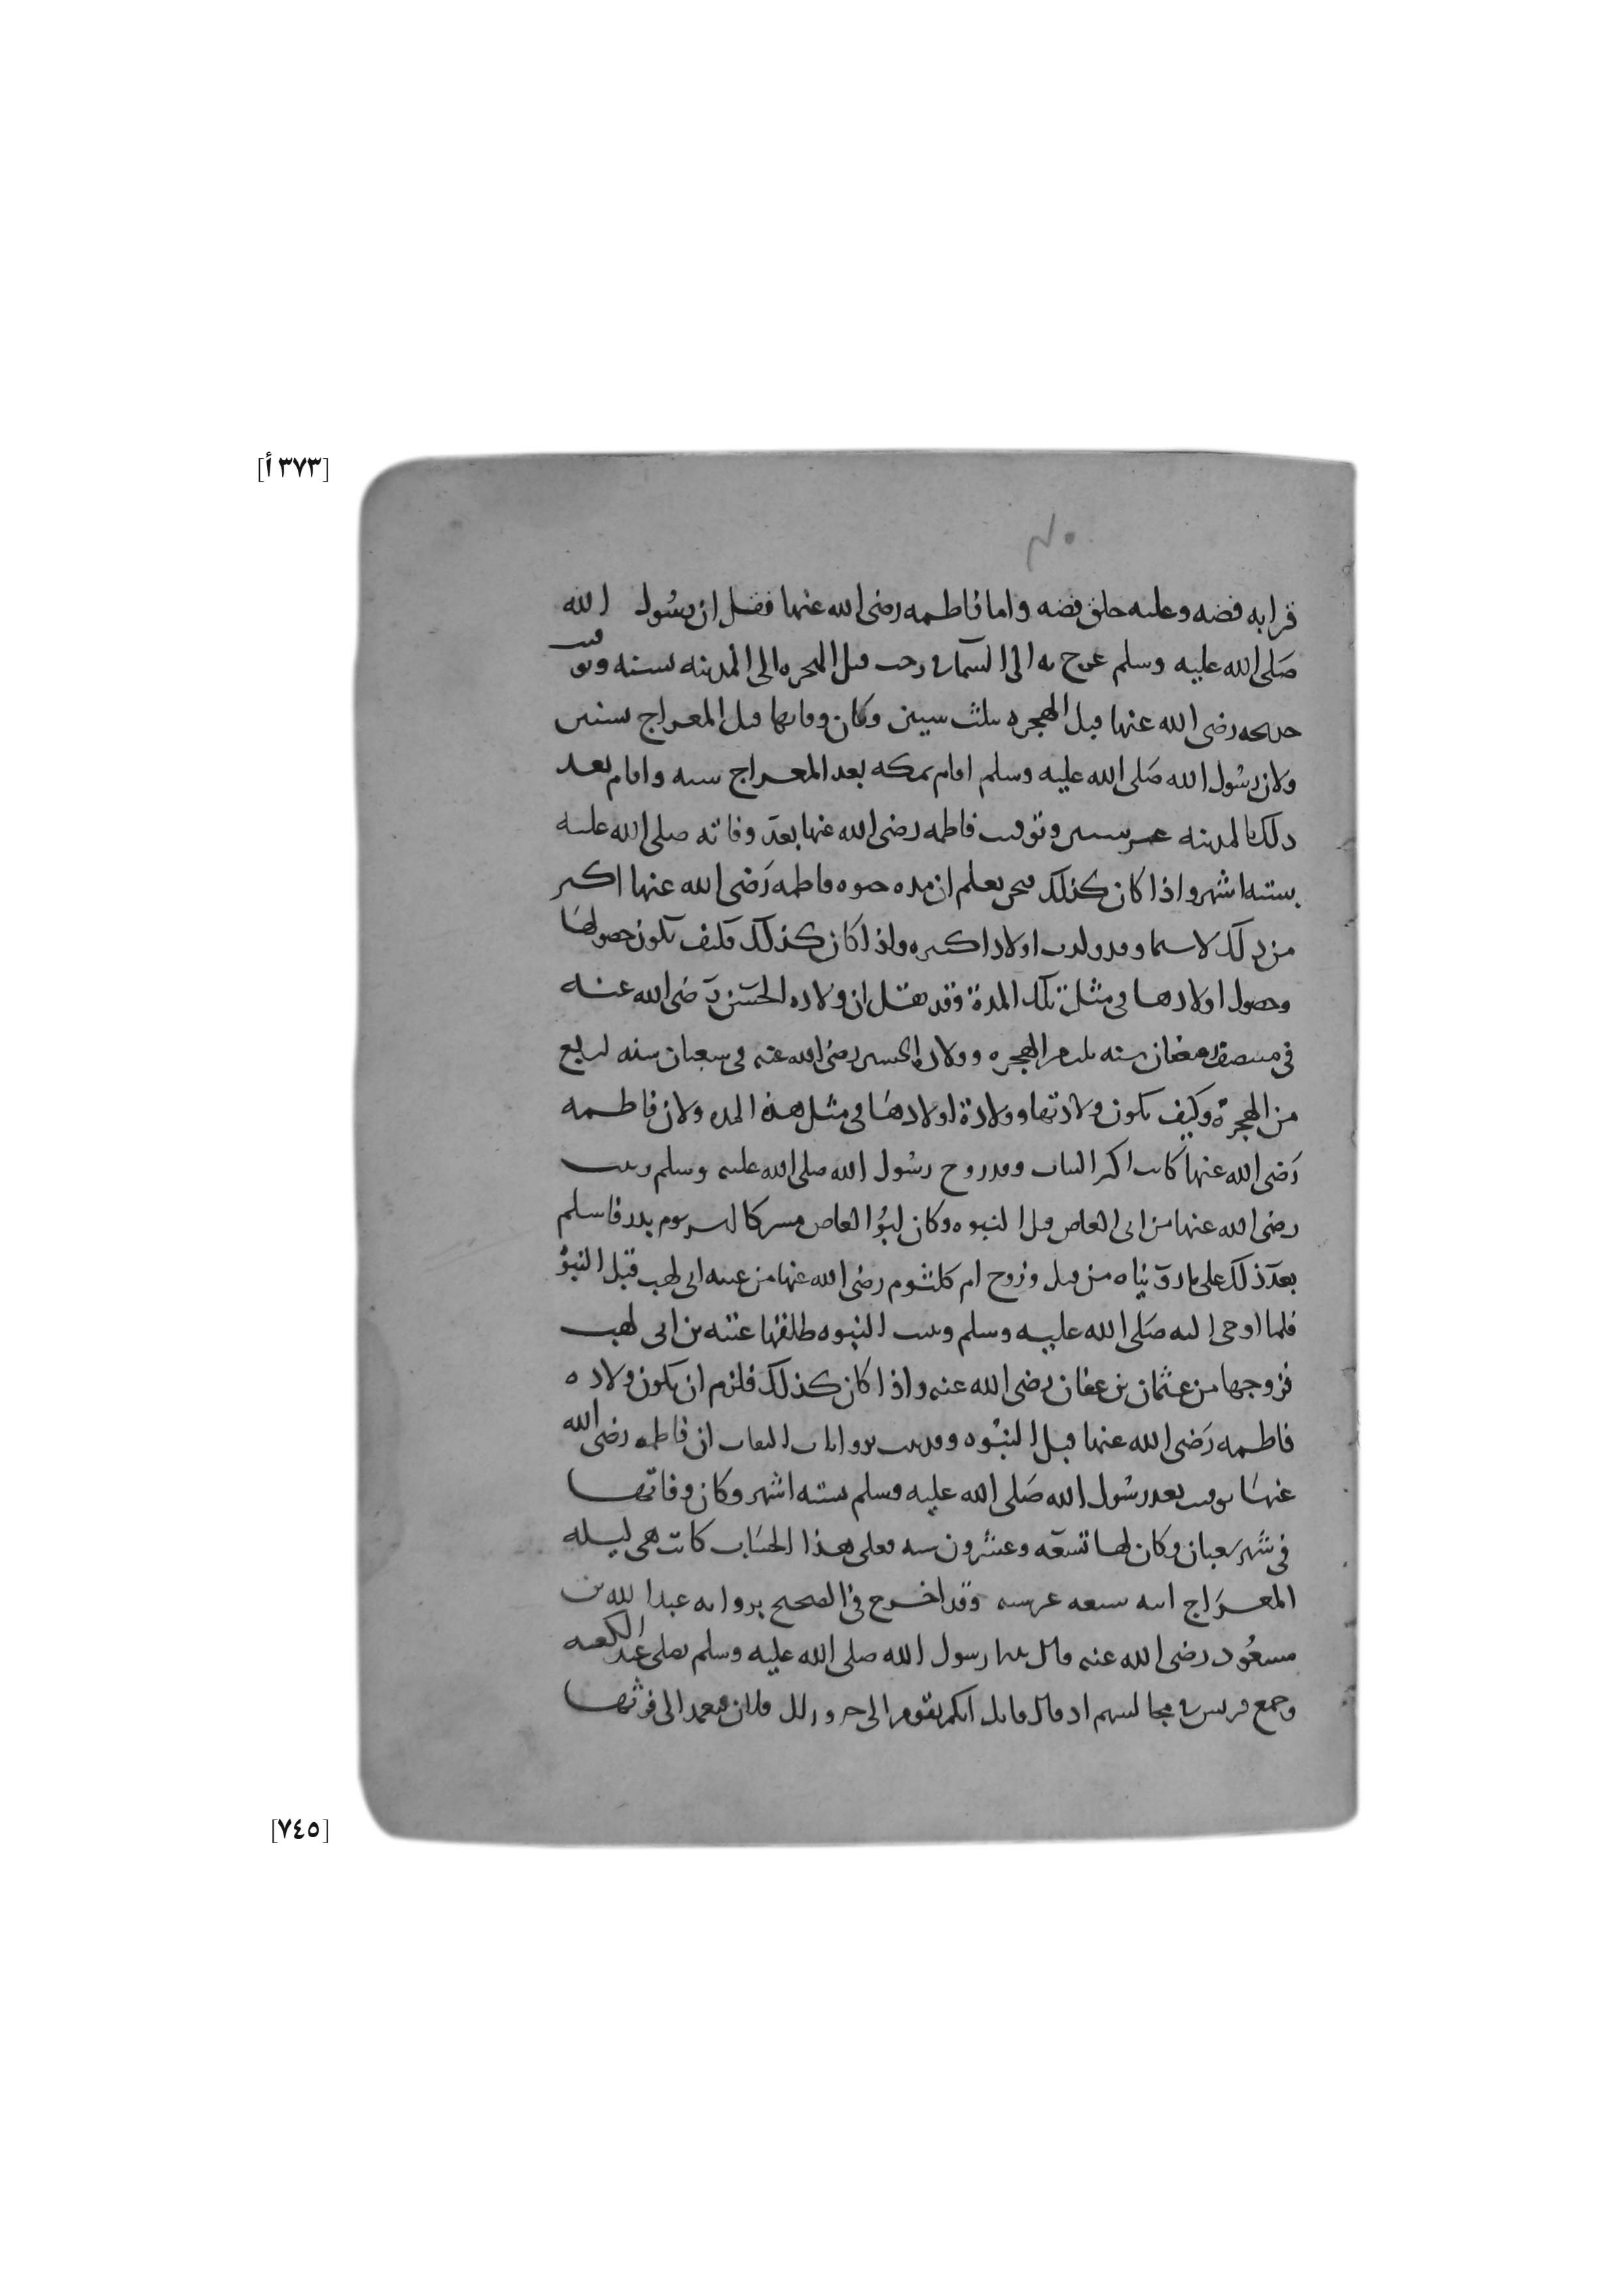 [٣٧٣ أ]
قرابه فضه وعليه حلق فضه واما فاطمه رضى الله عنها فنقل ان رسول الله
صلى الله عليه وسلم عرج به الى السماء فى رجب قبل الهجره الى المدينه بسنه وتوفيت
خديجه رضى الله عنها قبل الهجره بثلث سنين وكان وفاتها قبل المعراج بسنتين
ولان رسول الله صلى الله عليه وسلم اقام بمكه بعد المعراج سنه واقام بعد
ذلك بالمدينه عشر سنين وتوفيت فاطمه رضى الله عنها بعد وفاته صلى الله عليه
بسته اشهر واذا كان كذلك فنحن نعلم ان مده حيوه فاطمه رضى الله عنها اكثر
من ذلك لا سيما وقد ولدت اولادا كثيره واذا كان كذلك فكيف تكون حصولها
وحصول اولادها فى مثل تلك المدة وقد نقل ان ولاده الحسن رضى الله عنه
فى منتصف رمضان سنه ثلث من الهجره وولاده الحسين رضى الله عنه فى شعبان سنه اربع
من الهجرة وكيف تكون ولادتها وولادة اولادها فى مثل هذه المده ولان فاطمه
رضى الله عنها كانت اكبر البنات وقد زوج رسول الله صلى الله عليه وسلم زينب
رضى الله عنها من ابى العاص قبل النبوه وكان ابو العاص مشركا يوم بدر فاسلم
بعد ذلك على ما رويناه من قبل وزوج ام كلثوم رضى الله عنها من عتبه ابى لهب قبل النبوة
فلما اوحى اليه صلى الله عليه وسلم النبوه طلقها عتبه بن ابى لهب
فزوجها من عثمان بن عفان رضى الله عنه واذا كان كذلك فلزم ان تكون ولاده
فاطمه رضى الله عنها قبل النبوه وقد ثبت بروايات الثقات ان فاطمه رضى الله
عنها توفيت بعد رسول الله صلى الله عليه وسلم بسته اشهر وكان وفاتها
فى شهر شعبان وكان لها تسعه وعشرون سنه فعلى هذا الحساب كانت هى ليله
المعراج ابنه سبعه عشر سنه وقد اخرج فى الصحيح بروايه عبد الله بن
مسعود رضى الله عنه قال بينما رسول الله صلى الله عليه وسلم يصلى عند الكعبه
وجمع قريش فى مجالسهم اذ قال قائل ايكم يقوم الى جزور ال فلان فيعمد الى فرثها
[٧٤٥]